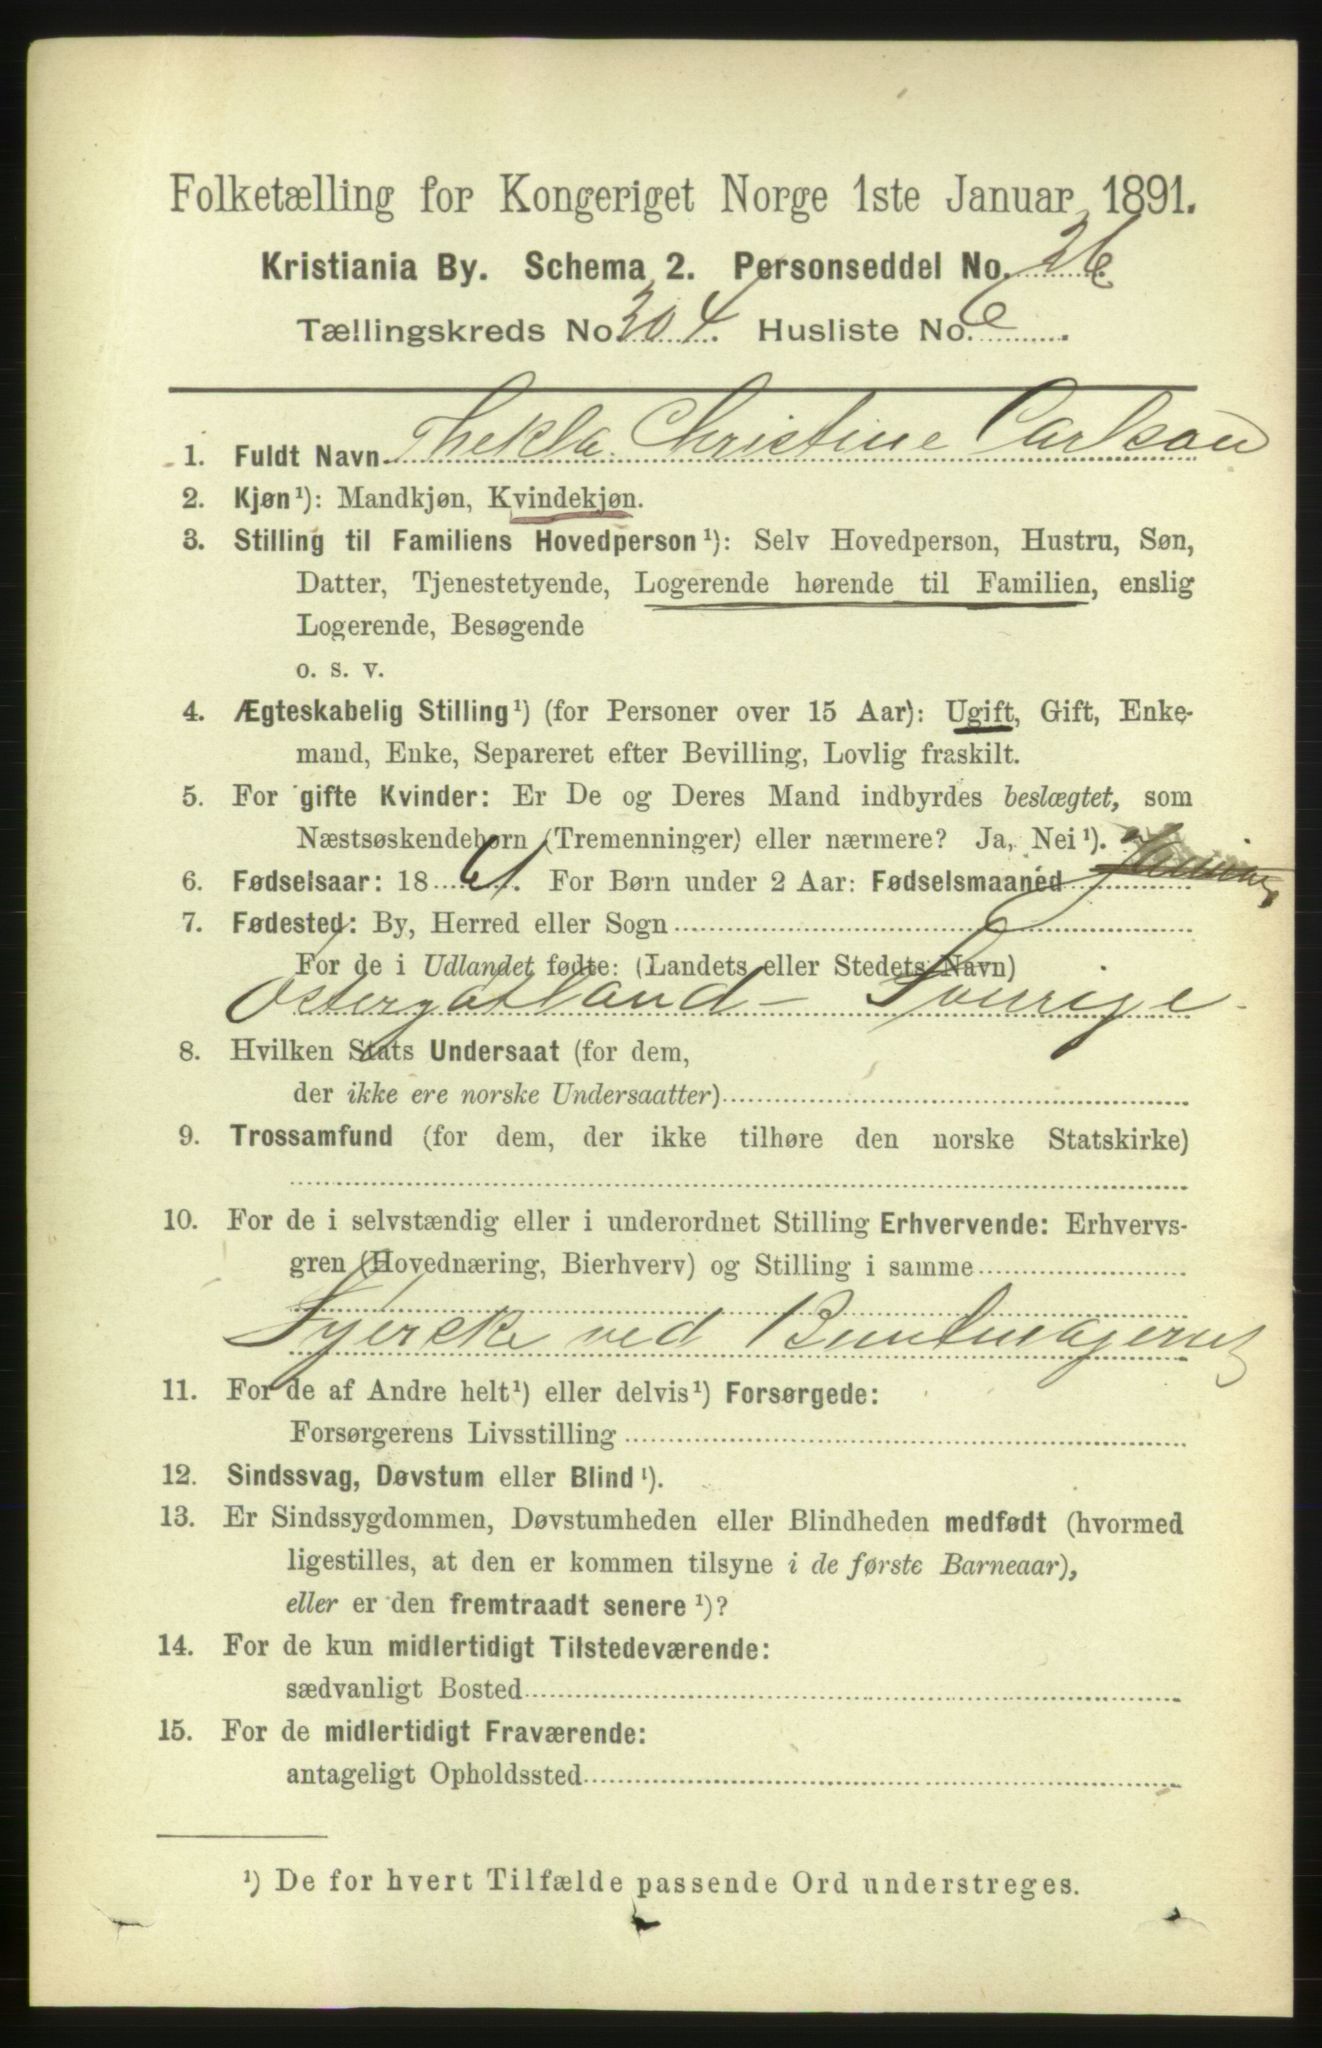 Folketælling for Kongeriget Norge 1ste Januar 1891.
Kristiania By. Schema 2. Personseddel No. 36
Tællingskreds No. 304. Husliste No. 6
1. Fuldt Navn Thekla Christine Carlson
2. Kjøn¹): Mandkjøn, Kvindekjøn.
3. Stilling til Familiens Hovedperson¹): Selv Hovedperson, Hustru, Søn,
Datter, Tjenestetyende, Logerende hørende til Familien, enslig
Logerende, Besøgende
o. s. v.
4. Ægteskabelig Stilling¹) (for Personer over 15 Aar): Ugift, Gift, Enke-
mand, Enke, Separeret efter Bevilling, Lovlig fraskilt.
5. For gifte Kvinder: Er De og Deres Mand indbyrdes beslægtet, som
Næstsøskendebørn (Tremenninger) eller nærmere? Ja, Nei¹).
6. Fødselsaar: 1861. For Børn under 2 Aar: Fødselsmaaned
7. Fødested: By, Herred eller Sogn
For de i Udlandet fødte: (Landets eller Stedets Navn)
Østergøtland - Sverige -
8. Hvilken Stats Undersaat (for dem,
der ikke ere norske Undersaatter)
9. Trossamfund (for dem, der ikke tilhøre den norske Statskirke)
10. For de i selvstændig eller i underordnet Stilling Erhvervende: Erhvervs-
gren (Hovednæring, Bierhverv) og Stilling i samme
Syerske ved
11. For de af Andre helt¹) eller delvis¹) Forsørgede:
Forsørgerens Livsstilling
12. Sindssvag, Døvstum eller Blind¹).
13. Er Sindssygdommen, Døvstumheden eller Blindheden medfødt (hvormed
ligestilles, at den er kommen tilsyne i de første Barneaar),
eller er den fremtraadt senere¹)?
14. For de kun midlertidigt Tilstedeværende:
sædvanligt Bosted
15. For de midlertidigt Fraværende:
antageligt Opholdssted
¹) De for hvert Tilfælde passende Ord understreges.